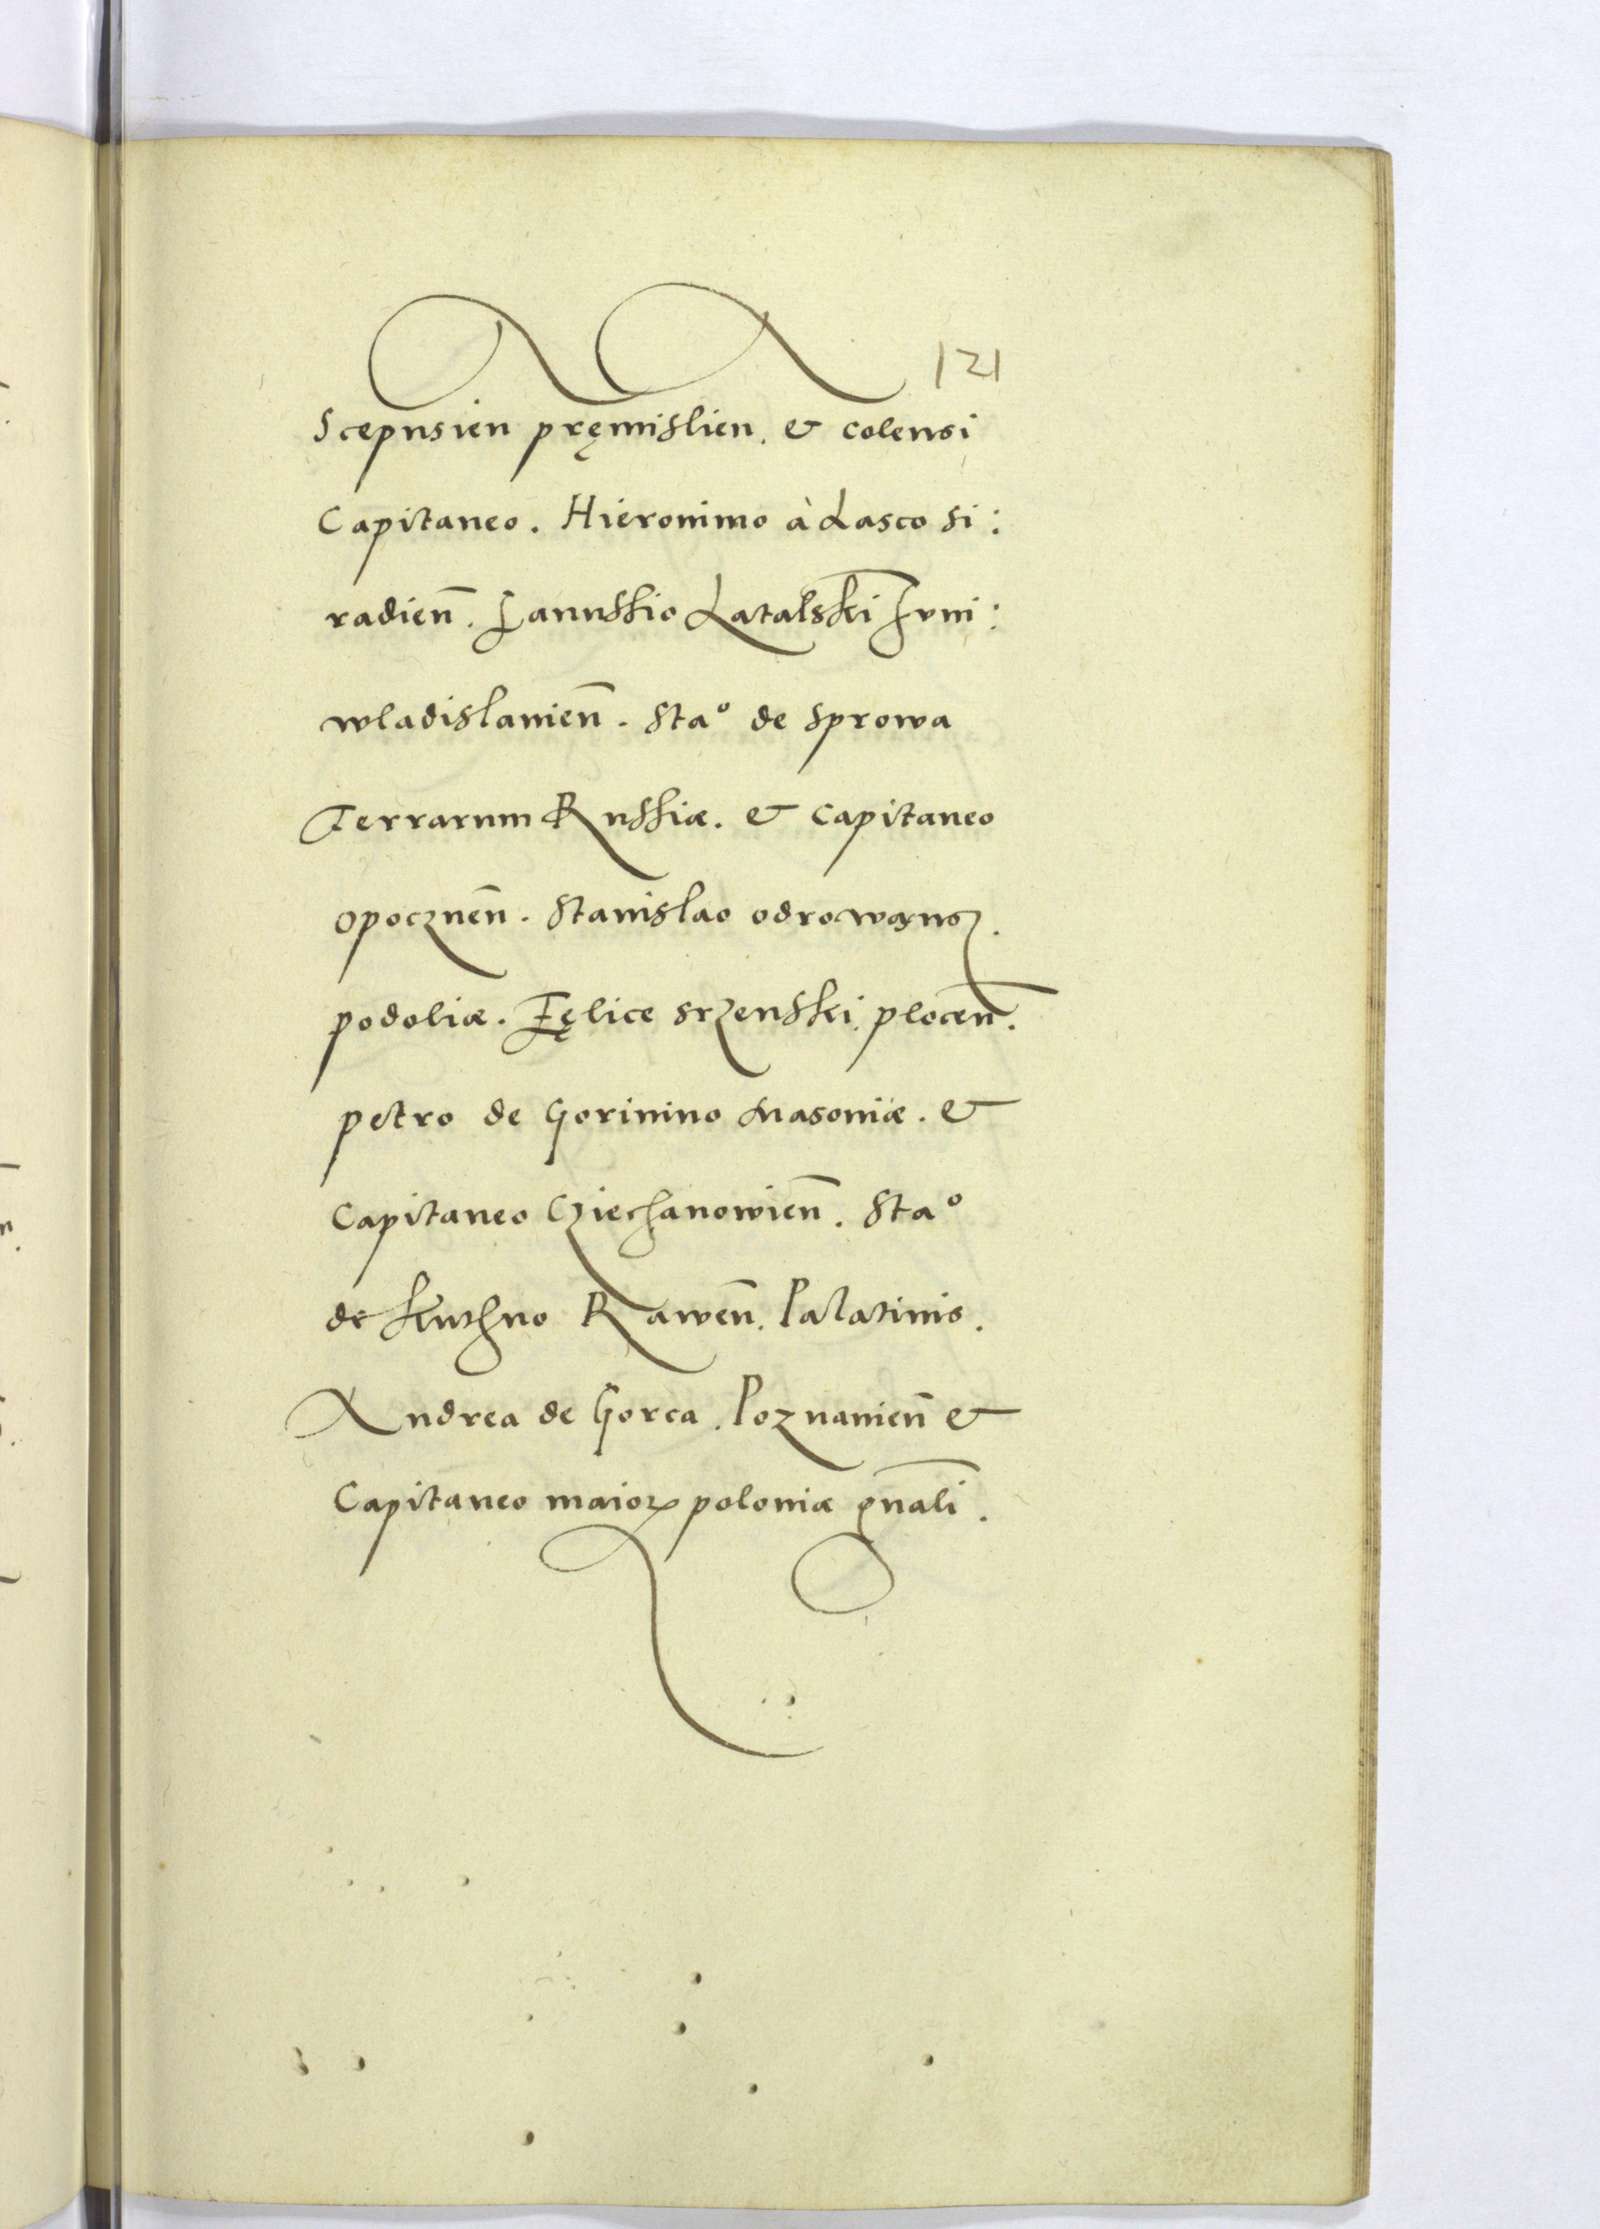 121
Scepusien pręmislien. & colensi
Capitaneo. Hieronimo à Lasco Si:
radien̄. Ianussio Latalski Iuni:
wladislauien̄. Staº de Sprowa
Terrarum Russiæ. & Capitaneo
opocznen̄. Stanislao odrowąnsz.
podoliæ. Fęlice srzenski plocen̄.
petro de Gorinino Masouiæ. &
Capitaneo Cziechanowien̄. Staº
de Kuthno Rawen̄. Palatinis.
Andrea de Gorca. Poznanien̄ &
Capitaneo maioꝝ poloniæ gn̄ali.